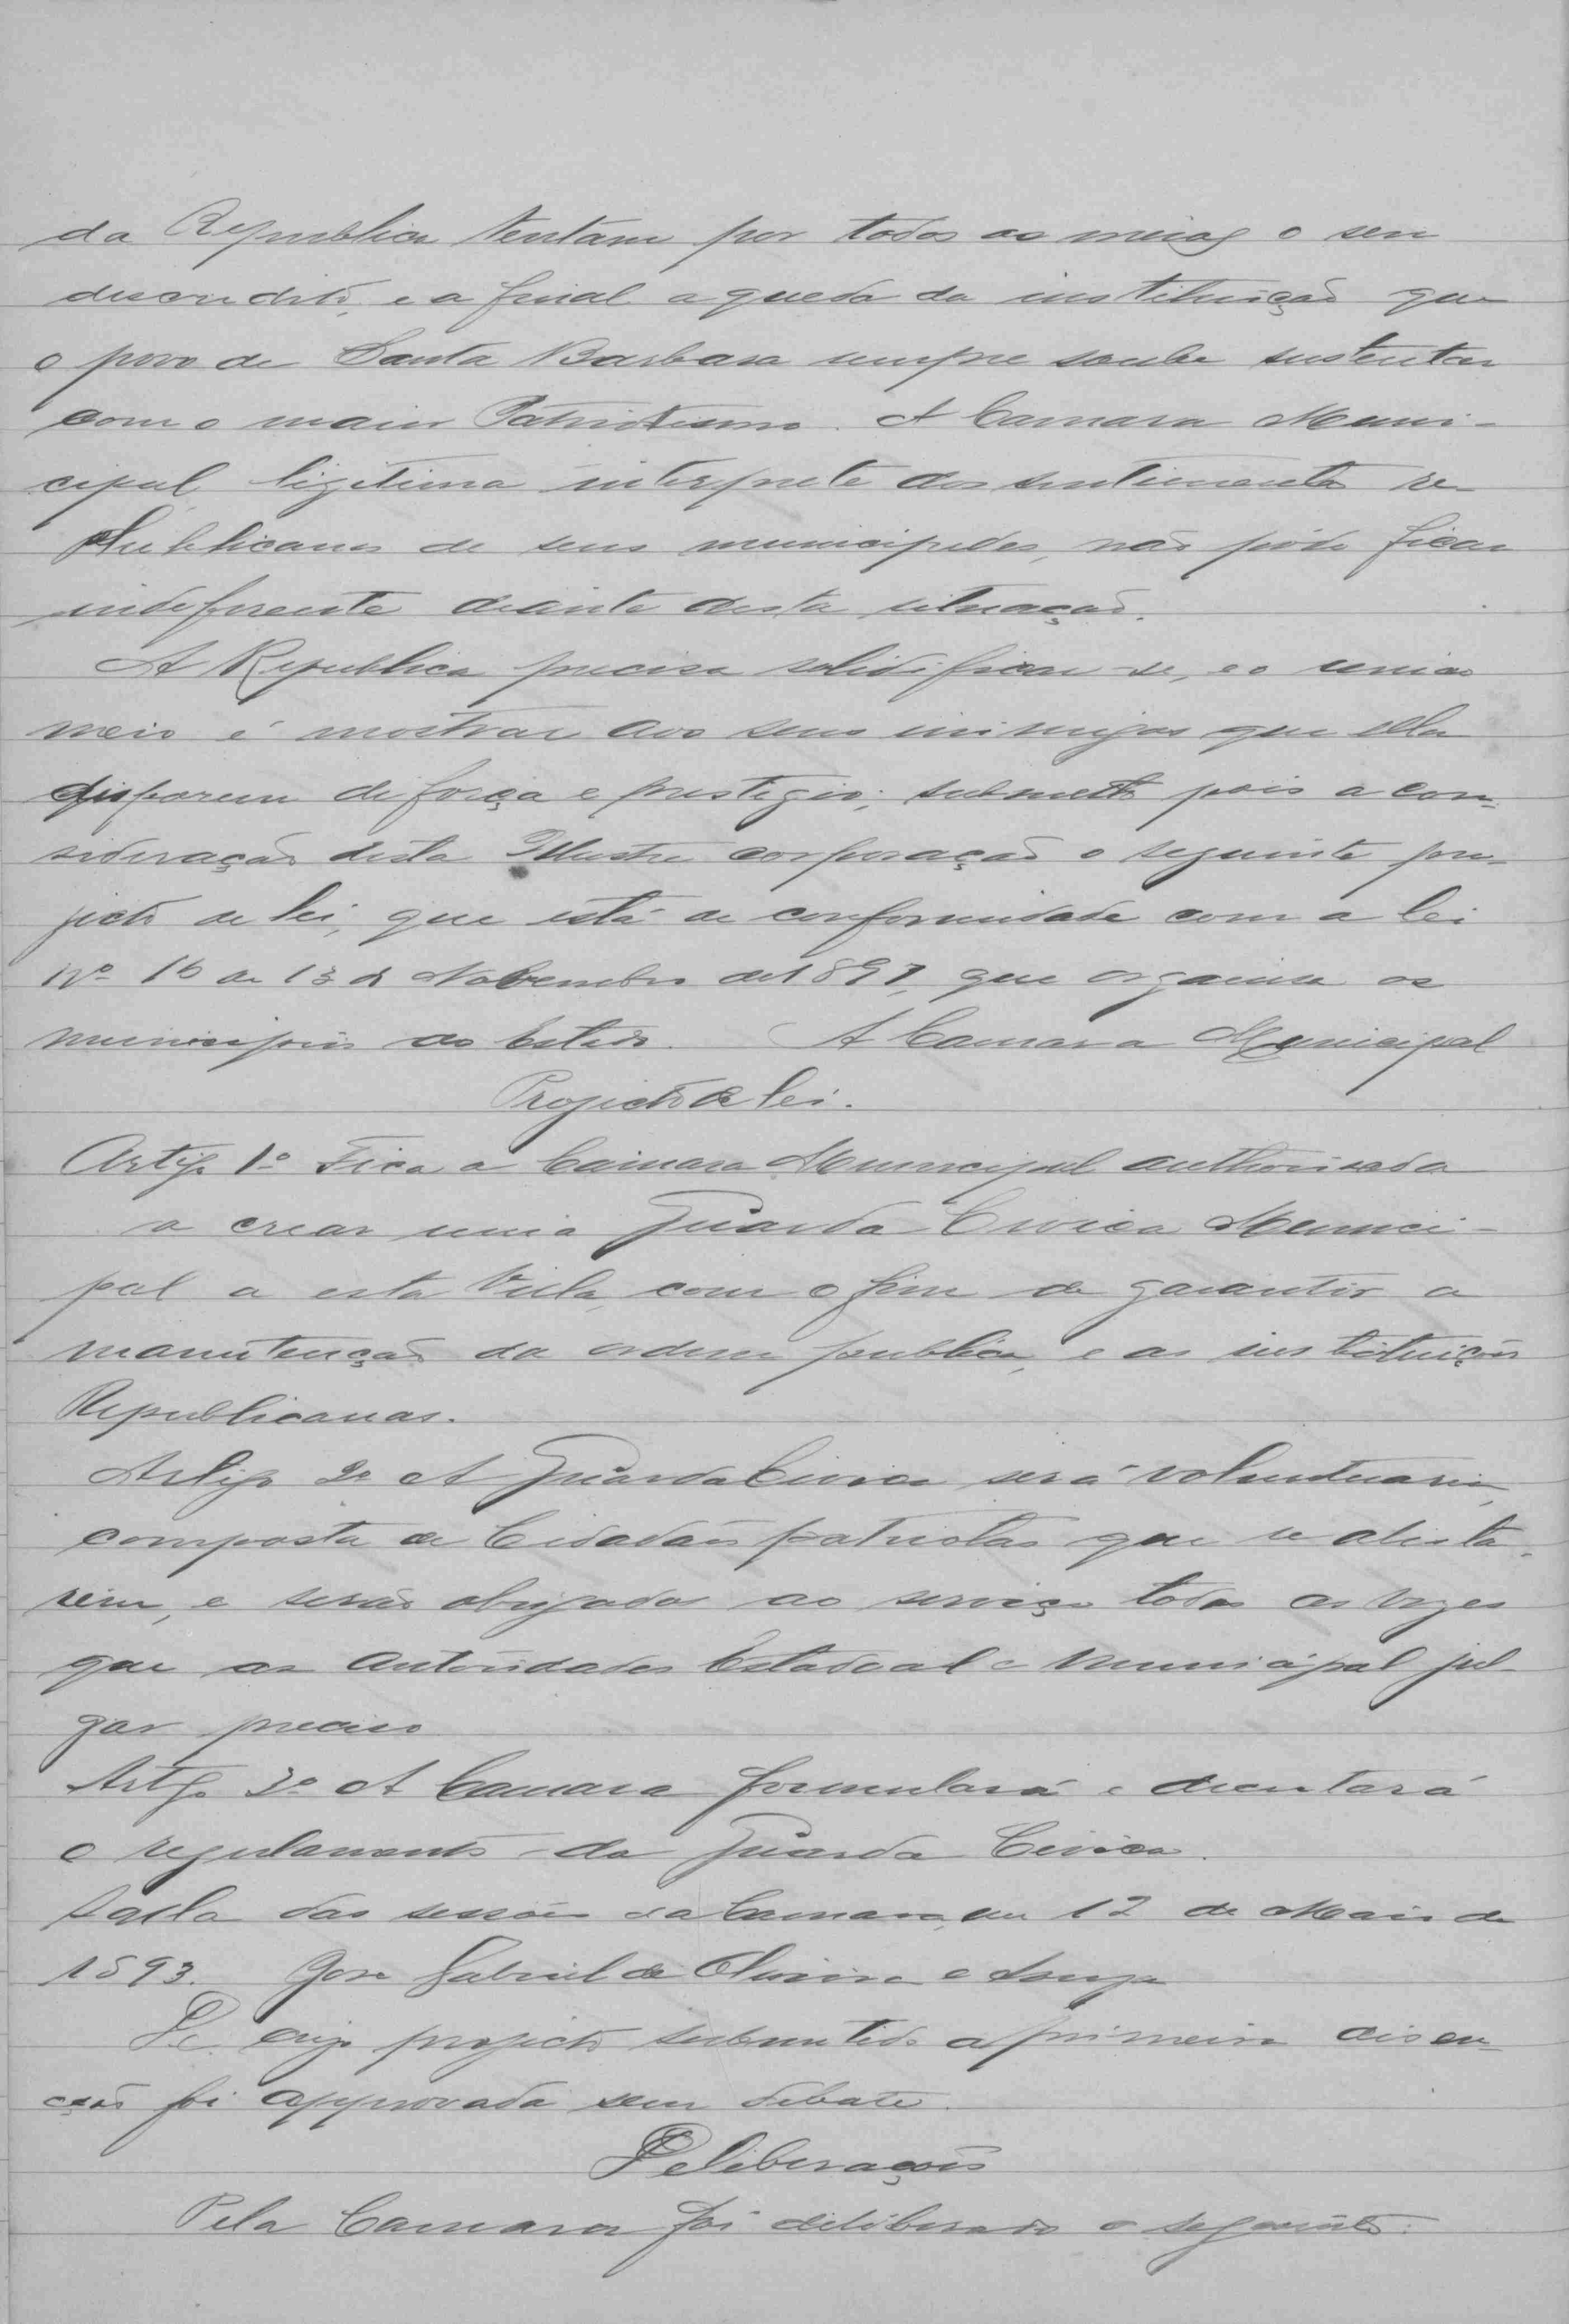 da Republica tentam por todos os meios o seu
descredito, e a final a queda da instituição que
o povo de Santa Barbara sempre soube sustentar
com o maior Patriotismo. A Camara Muni-
cipal, ligitima interprete dos sentimentos re-
publicanos de seus municipedes, não póde ficar
indeferente deante desta situação.
A Republica precisa solidificar-se, e o unico
meio é mostrar aos seus inimigos que ella
disporem de força e prestigio; submetto pois a con-
sideração desta Illustre corporação o seguinte pro-
jecto de lei, que está de conformidade com a lei
Nº 16 de 13 de Novembro de 1891, que organisa os
municipios do Estado. A Camara Municipal
Projecto de lei.
Artigo 1º Fica a Camara Municipal authorisada
a crear uma Guarda Civica Munici-
pal a esta Villa, com o fim de garantir a
manutenção da ordem publica, e as instituições
Republicanas.
Artigo 2º A Guarda Civica será voluntuaria,
composta de Cidadãos patriotas que se alista-
rem, e serão obrigados ao serviço todas as vezes
que as autoridades Estadoal e Municipal jul-
gar preciso
Artgo 3º A Camara formulará e decretará
o regulamento da Guarda Civica.
Salla das sessões da Camara, em 12 de Maio de
1893. Jose Gabriel de Oliveira e Souza
De cujo projecto submettido a primeira discu-
ção foi approvada sem debate.
Deliberações
Pela Camara foi deliberado o seguinte: